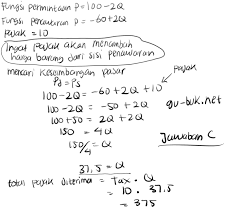 Fungsi permintaan P=100-2Q
Fungsi penawaran P=-60+2Q
Pajak = 10
Ingat pajak akan menambah
harga barang dari sisi penawaran
mencari keseimbangan pasar
Pd = Ps
pajak
100-2Q = -60+2Q+10
100-2Q = -50+2Q
100+50 = 2Q+2Q
150 = 4Q
150/4 = Q
37,5 = Q
gu-buk.net
Jawaban C
total pajak diterima = Tax . Q
= 10 . 37.5
= 375